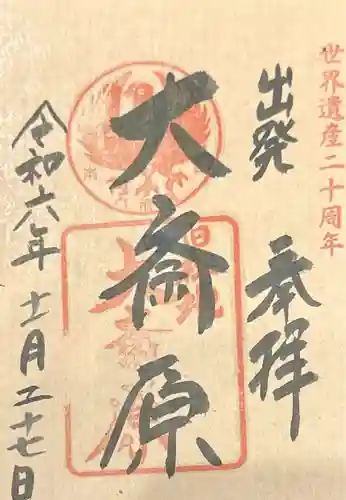 世界遺産二十周年
出発 奉拝
大斎原
令和六年十一月二十七日